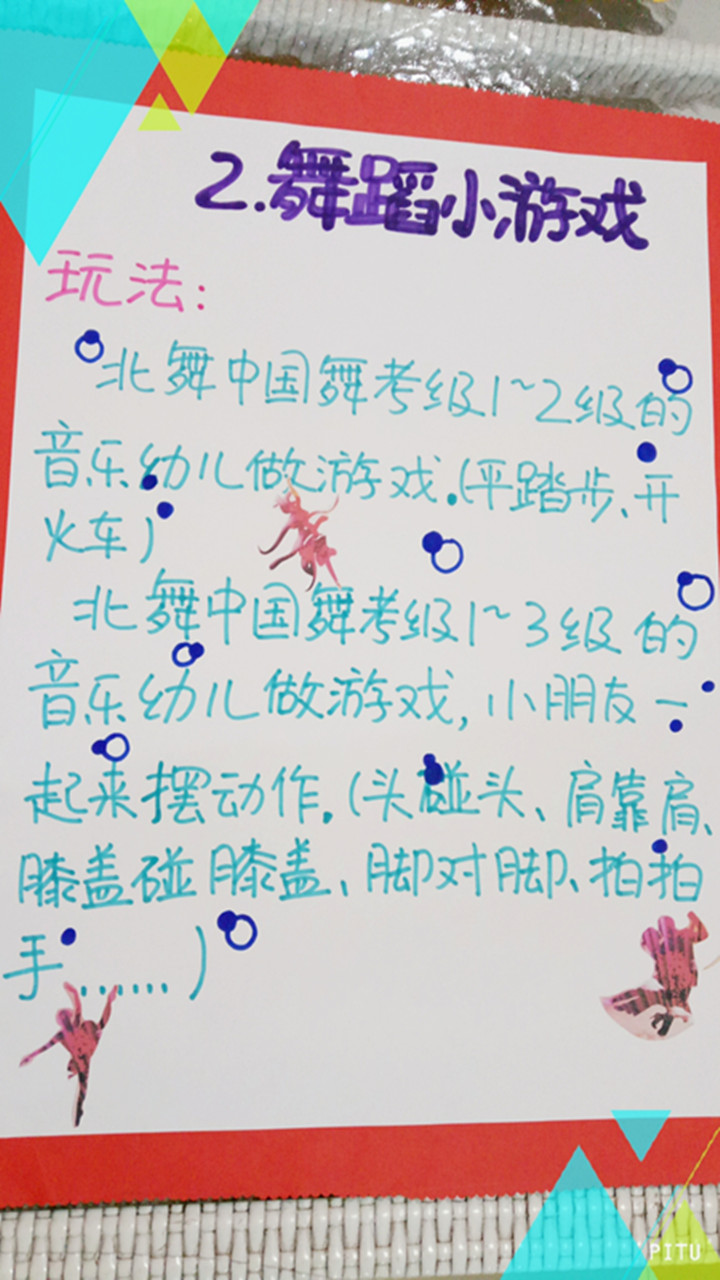 2.舞蹈小游戏
玩法:
北舞中国舞考级1~2级的
音乐幼儿做游戏.(平踏步、开
火车)
北舞中国舞考级1~3级的
音乐幼儿做游戏,小朋友一
起来摆动作.(头碰头、肩靠肩、
膝盖碰膝盖、脚对脚、拍拍
手......)
PITU